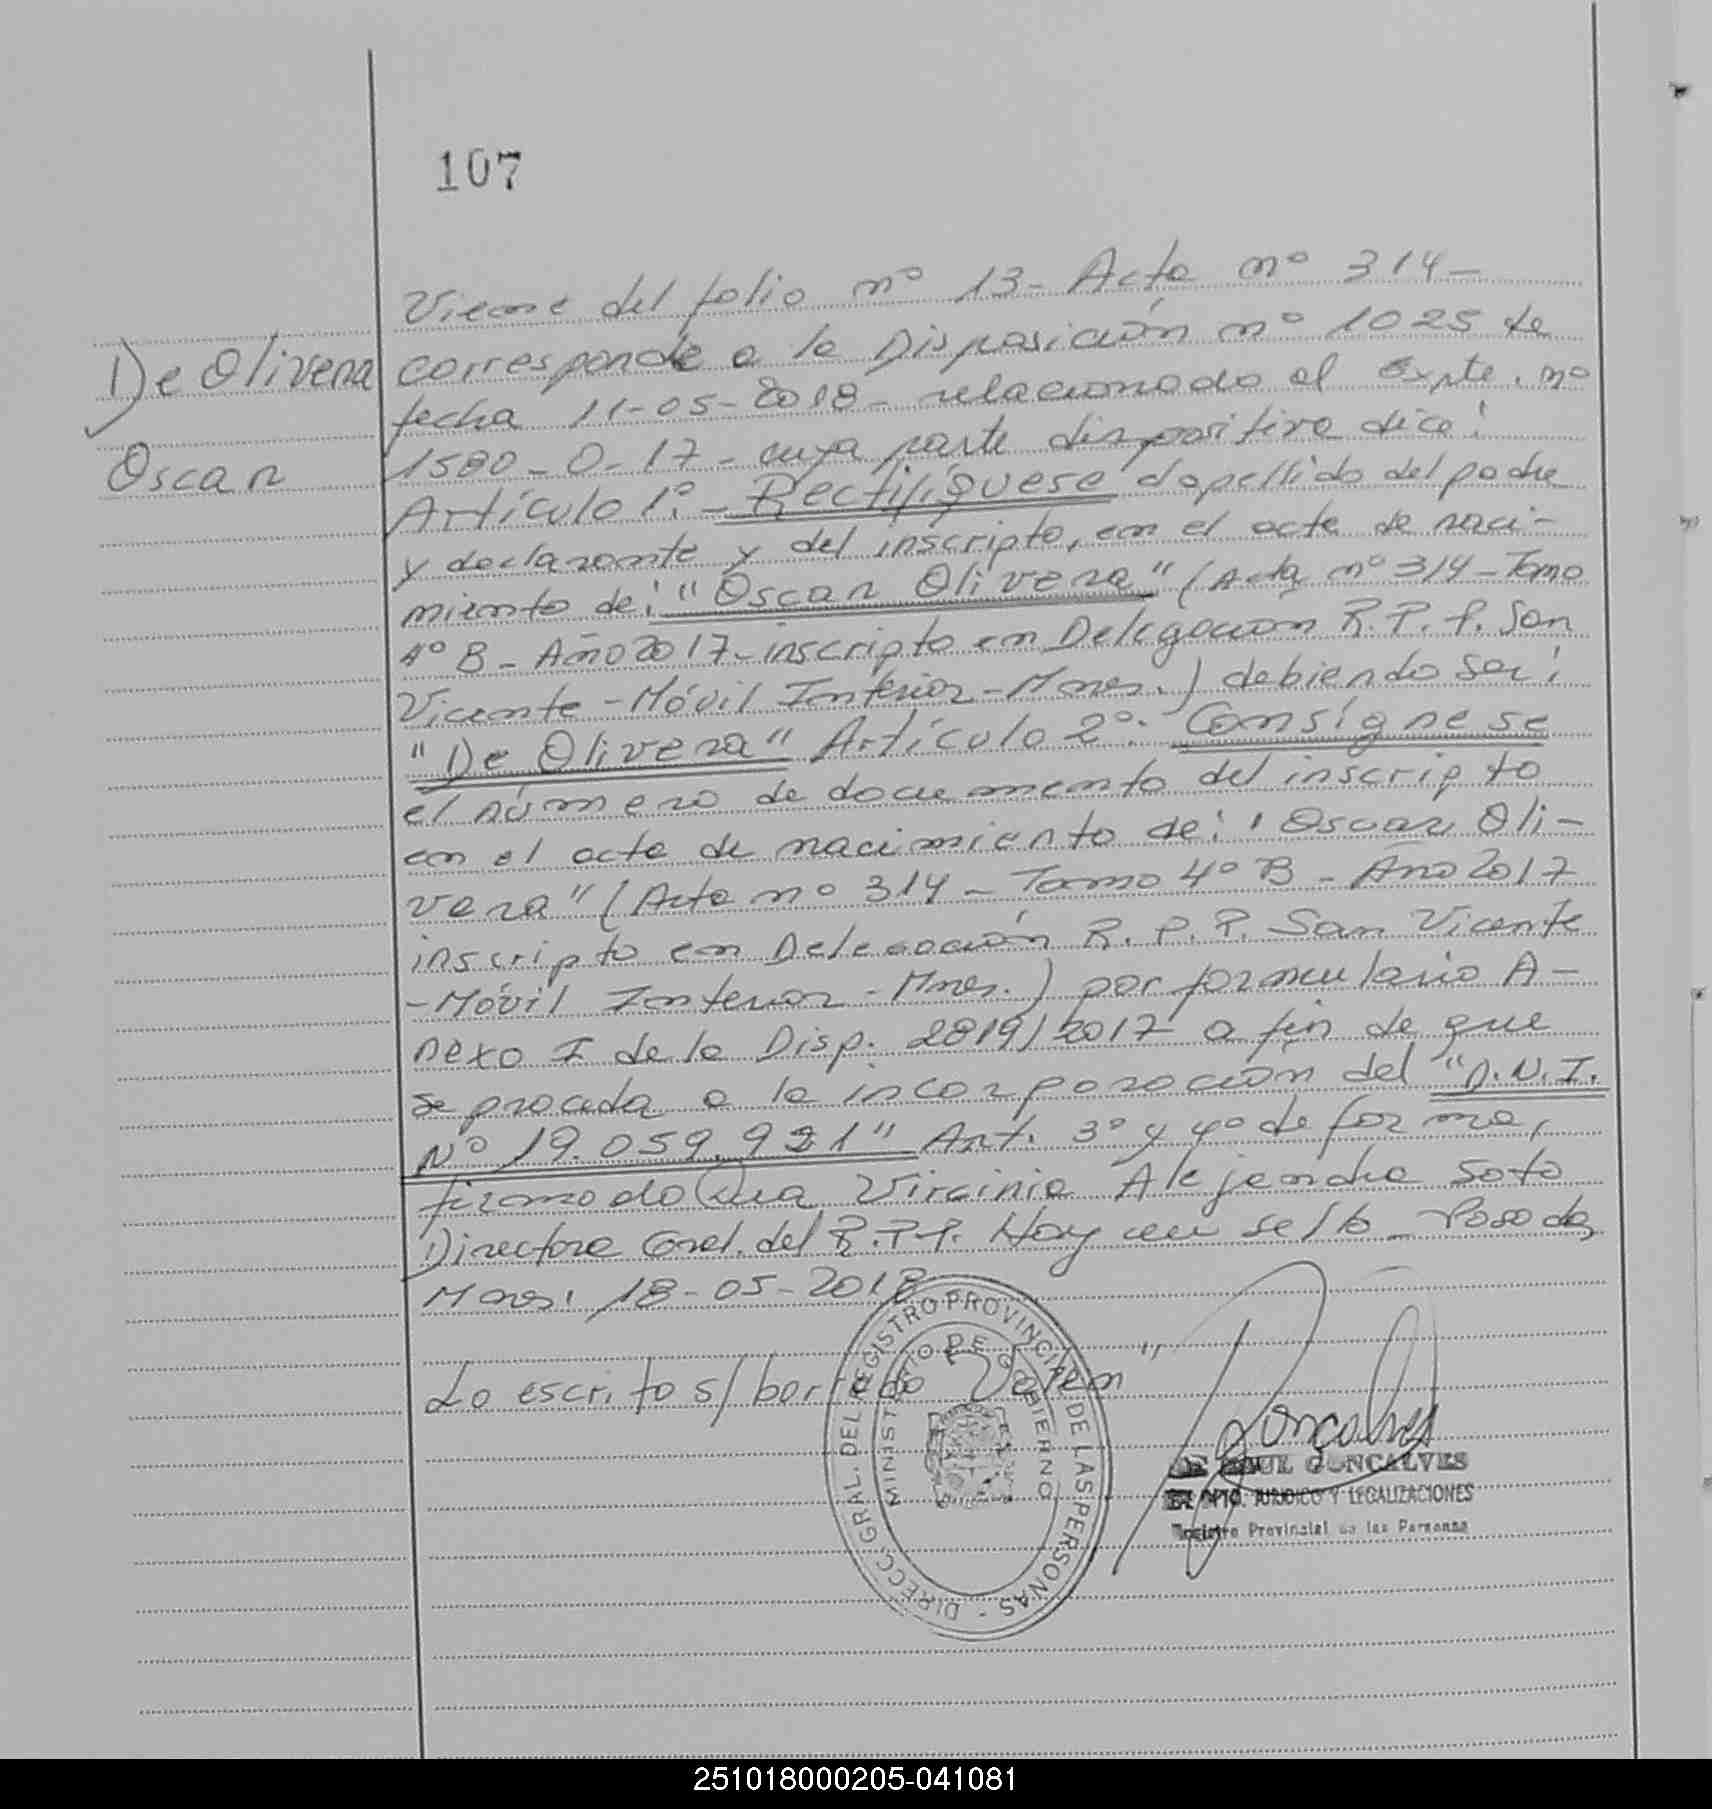 107
Viene del folio nº 13- Acta nº 314-
corresponde a la Disposición nº 1025 de
fecha 11-05-2018- relacionado al Expte. nº
1580-O-17- cuya parte dispositiva dice:
Artículo 1º- Rectifíquese el apellido del padre
y declarante y del inscripto, en el acta de naci-
miento de: "Oscar Olivera" (Acta nº 314-Tomo
4º B- Año 2017-inscripto en Delegación R.P.P. San
Vicente -Móvil Interior-Mnes.) debiendo ser:
"De Olivera" Artículo 2º. Consígnese
el número de documento del inscripto
en el acta de nacimiento de: "Oscar Oli-
vera" (Acta nº 314- Tomo 4º B - Año 2017
inscripto en Delegación R.P.P. San Vicente
-Móvil Interior-Mnes.) por formulario A-
nexo I de la Disp. 2819/2017 a fin de que
se proceda a la incorporación del "D.N.I.
Nº 19.059.921" Art. 3º y 4º de forma,
firmado Dra Virginia Alejandra Soto
Directora Gral. del R.P.P. Hay un sello- Posadas,
Mnes. 18-05-2018
Lo escrito s/borrado Valen"
De Olivera
Oscar
DIRECC. GRAL. DEL REGISTRO PROVINCIAL DE LAS PERSONAS -
MINISTERIO DE GOBIERNO
Goncalves
RAUL GONCALVES
DPTO. JURIDICO Y LEGALIZACIONES
Registro Provincial de las Personas
251018000205-041081